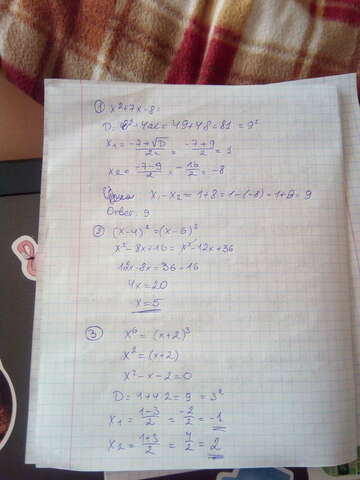 ① x²+7x-8=
D= b²-4ac= 49+48=81 =9²
x₁= -7+√D/2a = -7+9/2 = 1
x₂= -7-9/2 = -16/2 = -8
x₁-x₂= 1+8=1-(-8)=1+8=9
Ответ: 9
② (x-4)²=(x-6)²
x²-8x+16= x²-12x+36
12x-8x=36-16
4x=20
x=5
③ x⁶= (x+2)³
x²= (x+2)
x²-x-2=0
D= 1+4·2= 9 = 3²
x₁= 1-3/2 = -2/2 = -1
x₂= 1+3/2 = 4/2 = 2